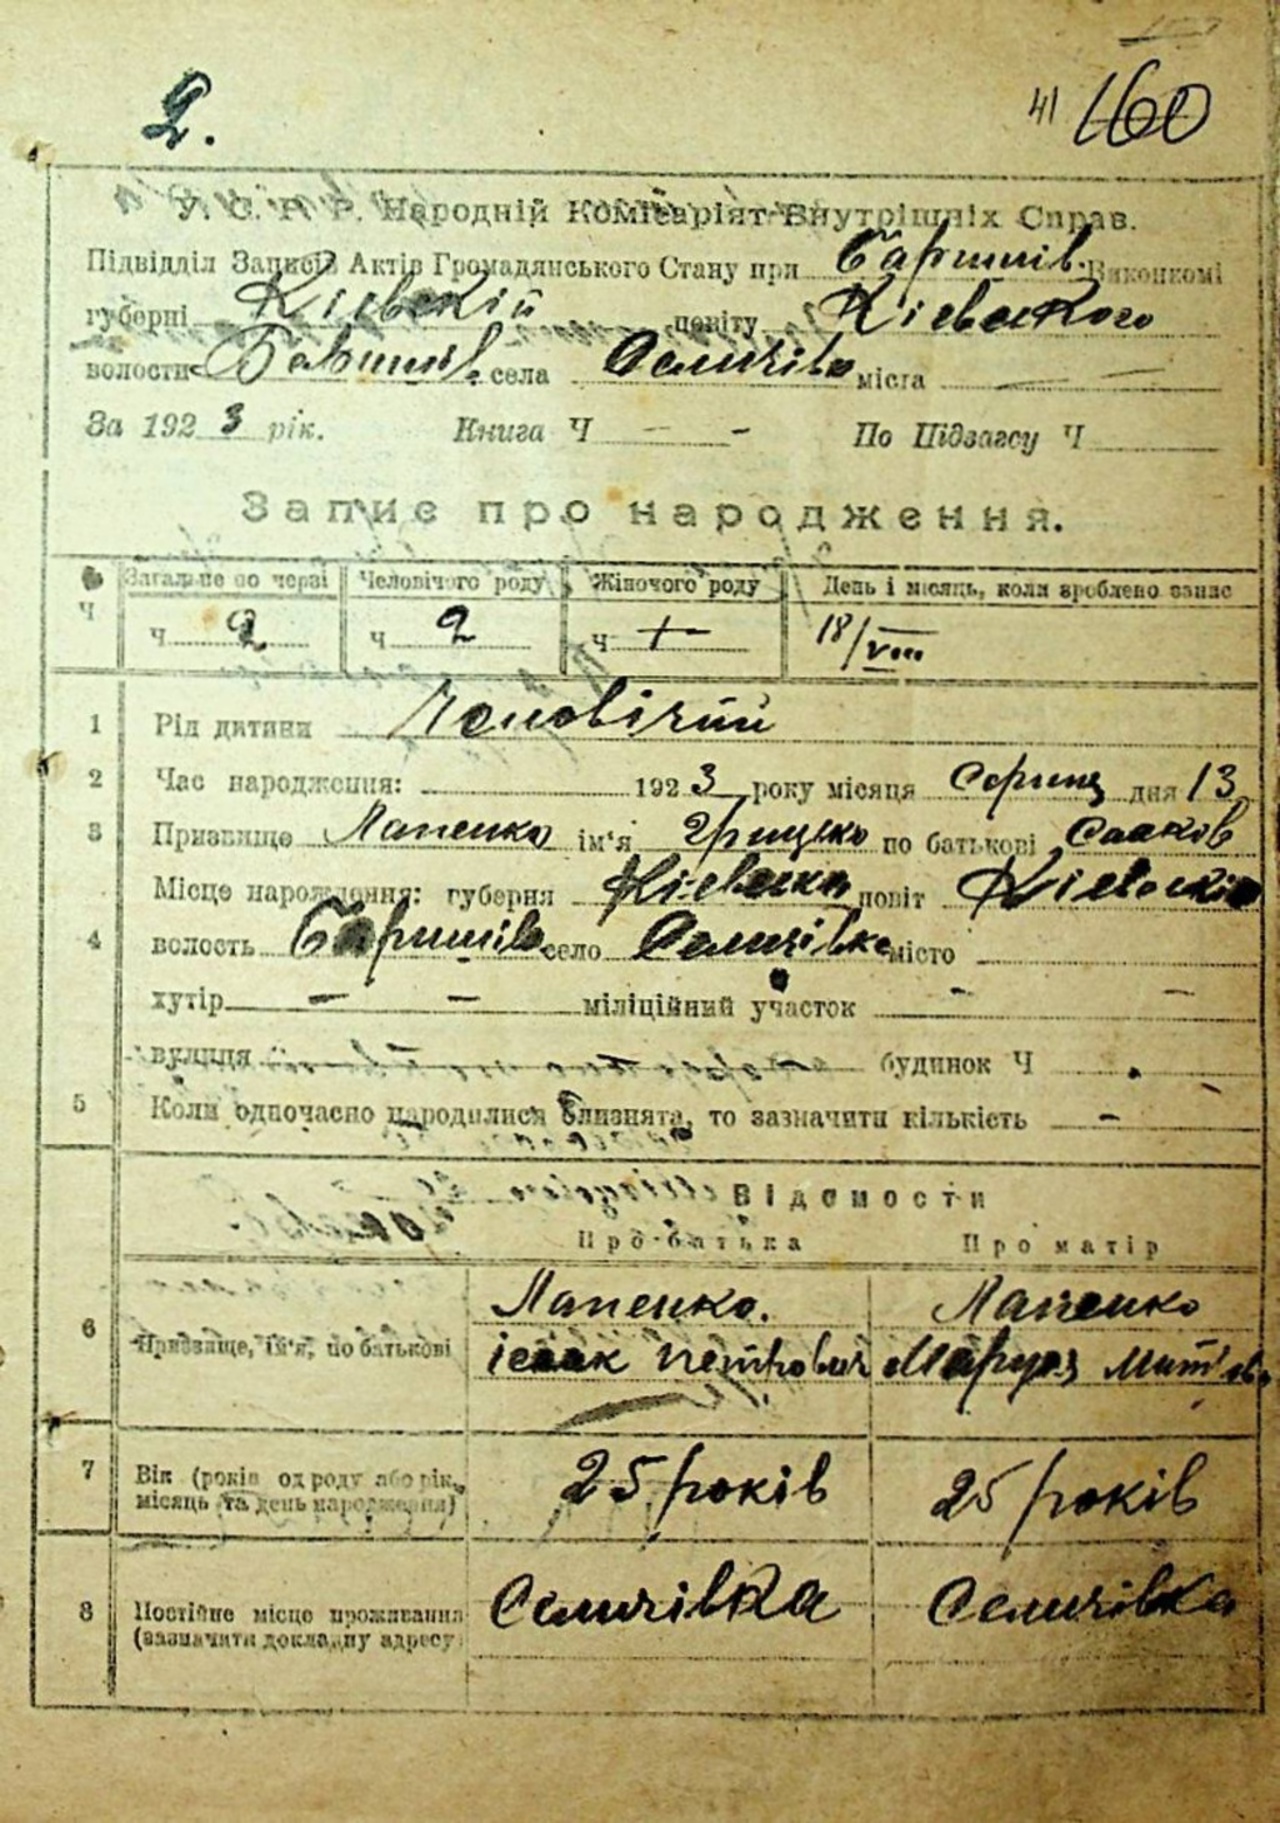 2.
41 160
У. С. Р. Р. Народній Комісаріят Внутрішніх Справ.
Підвідділ Записів Актів Громадянського Стану при Баришів. Виконкомі
губерні Кіевскій повіту Кіевского
волости Баришів. села Селичівка міста
За 1923 рік. Книга Ч — - По Підзагсу Ч
Запис про народження.
Ч Загальне по черзі Человічого роду Жіночого роду День і місяць, коли зроблено запис
ч 2 ч 2 ч + 18/VIII
1 Рід дитини Чоловічий
2 Час народження: 1923 року місяця Серпня дня 13
3 Призвище Лапенко ім'я Грицько по батькові Сааков
Місце народження: губерня Кіевска повіт Кіевскій
4 волость Баришів село Селичівка місто
хутір - - міліційний участок - -
вулиця будинок Ч
5 Коли одночасно народилися близнята, то зазначити кількість -
Відомости
Про батька Про матір
6 Призвище, ім'я, по батькові
Лапенко. Лапенко
ісаак Петрович Маруся
7 Вік (років од роду або рік, місяць та день народження) 25 років 25 років
8 Постійне місце проживання (зазначити докладну адресу) Селичівка Селичівка